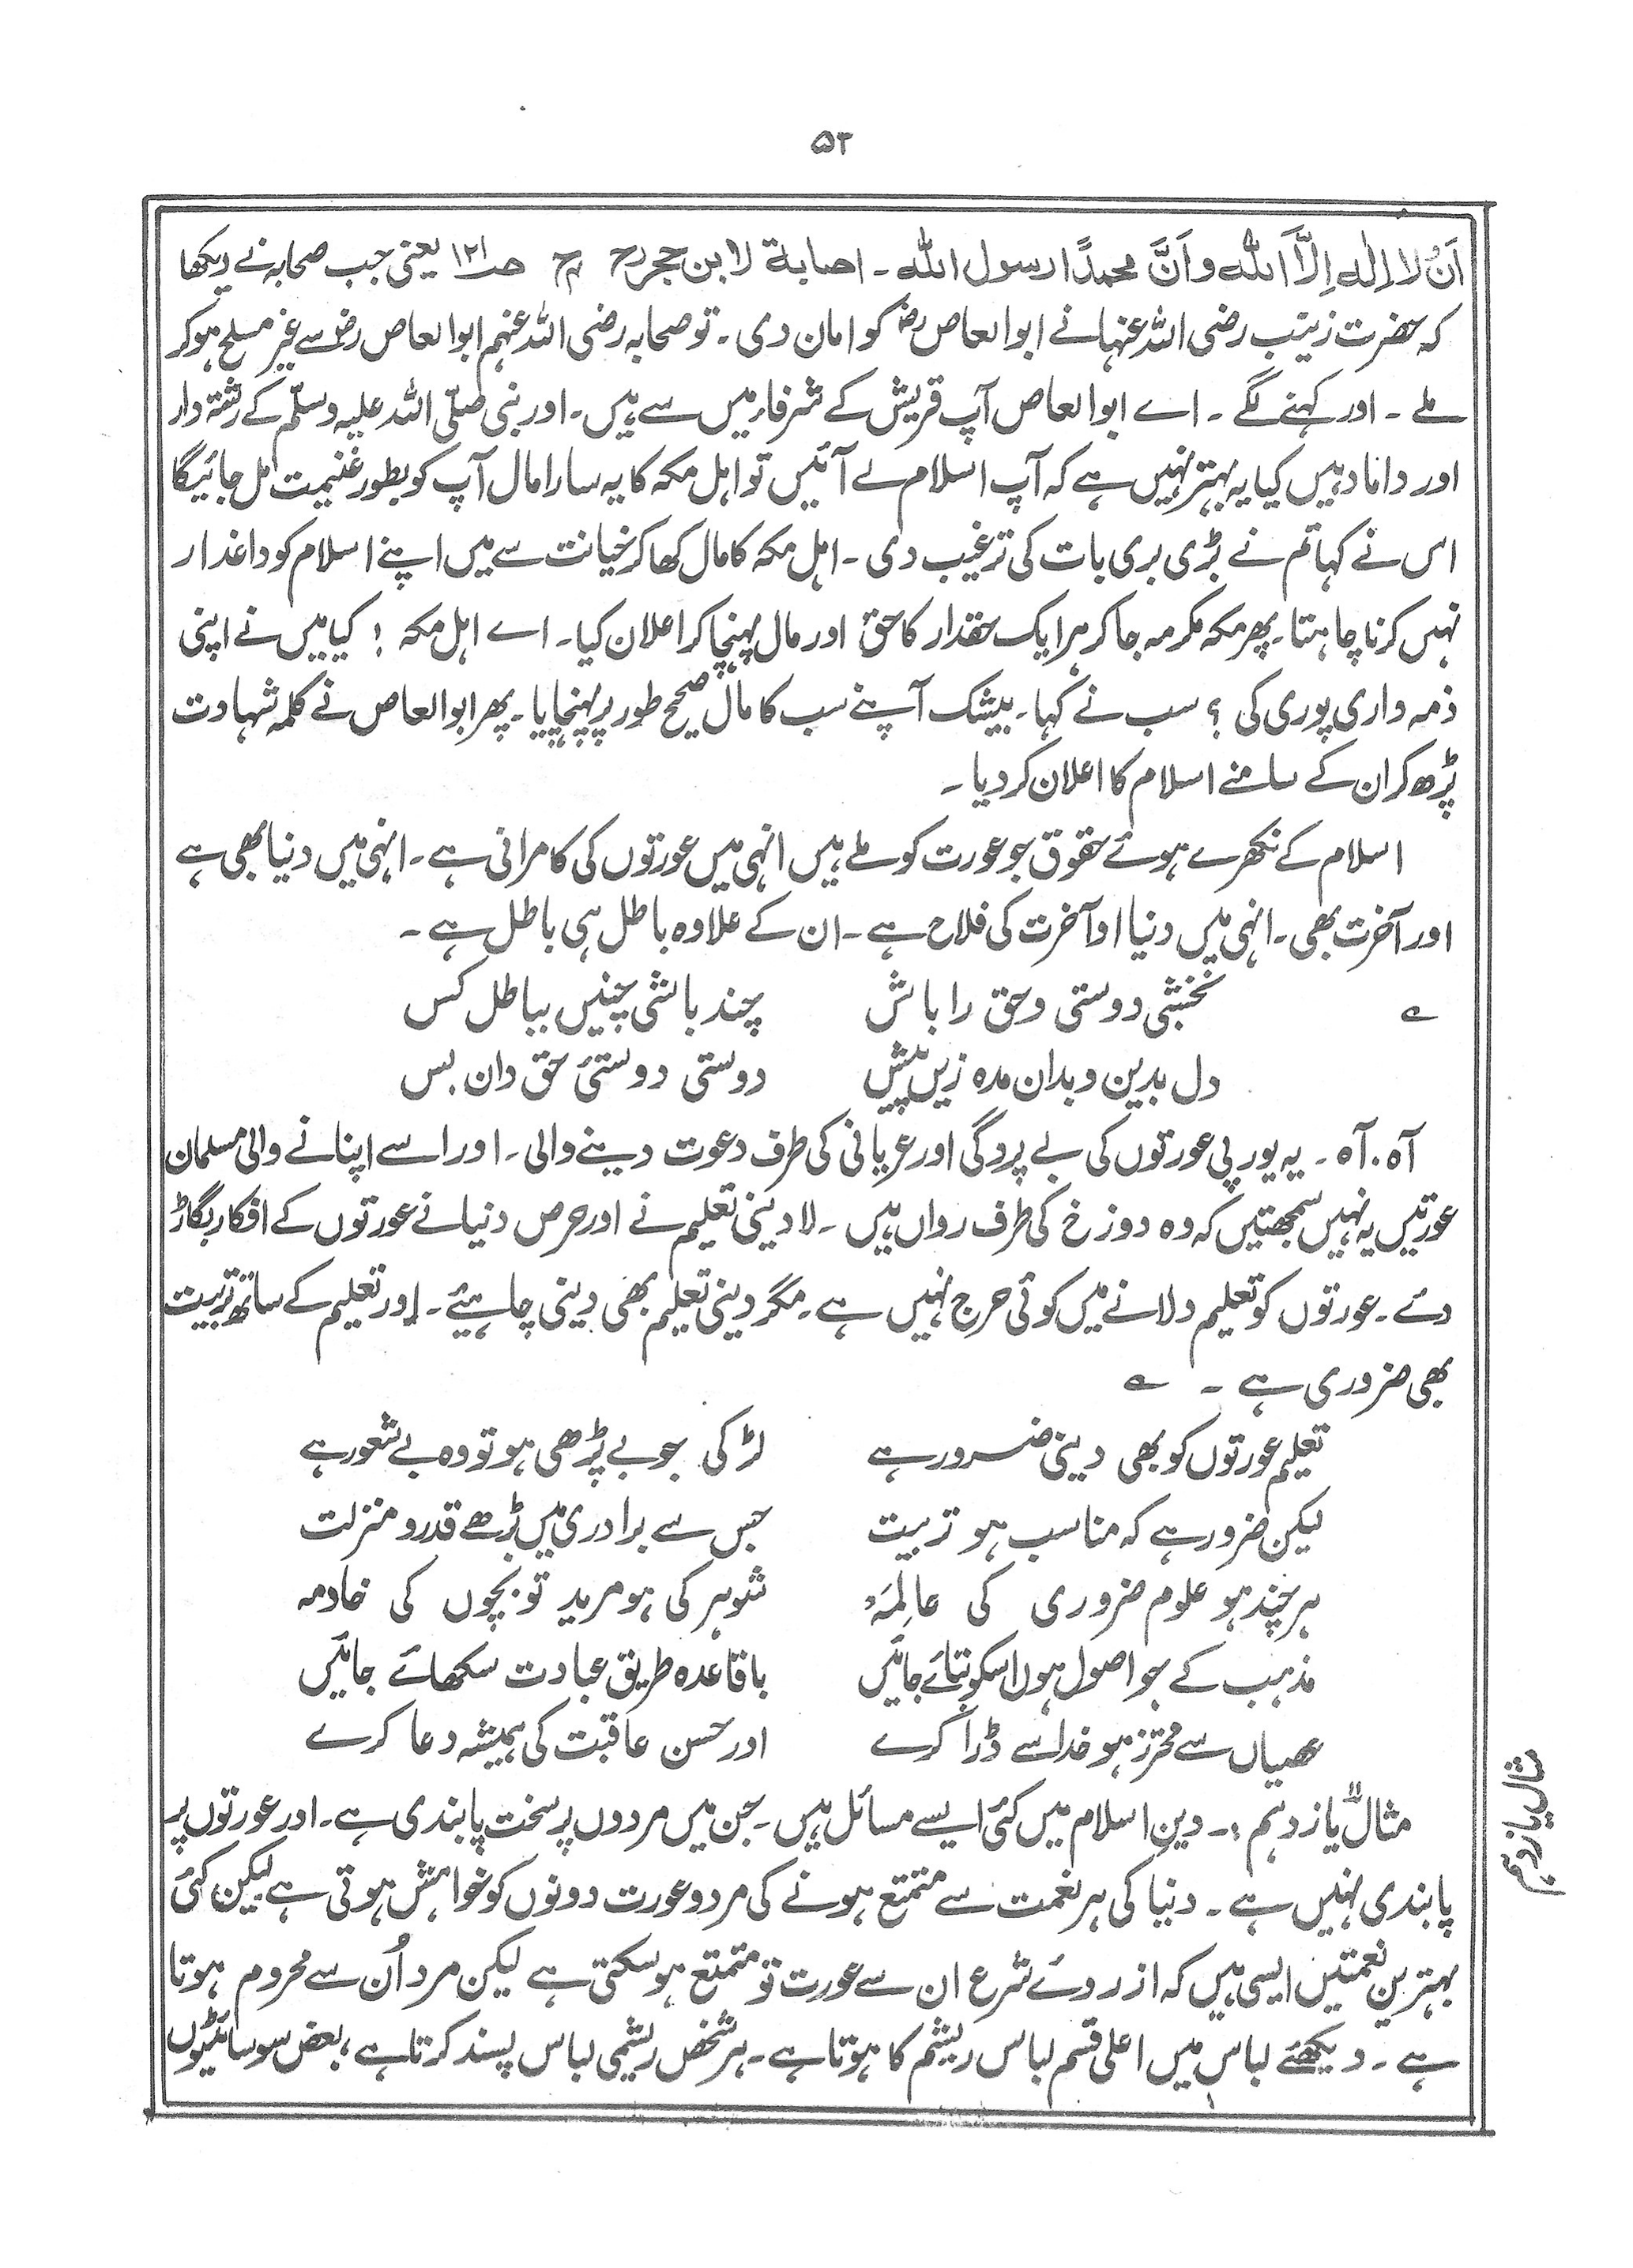 ۵۲
اَنْ لا اِلٰہ اِلَّا اللّٰہ و اَنَّ محمدًا رسول اللّٰہ ۔ اصابۃ لابن حجرؒ ج ۴ صـ ۱۲۱ یعنی جب صحابہ نے دیکھا
کہ حضرت زینب رضی اللہ عنہا نے ابوالعاصؓ کو امان دی ۔ تو صحابہ رضی اللہ عنہم ابوالعاصؓ سے غیر مسلح ہوکر
ملے ۔ اور کہنے لگے ۔ اے ابوالعاص آپ قریش کے شرفاء میں سے ہیں ۔ اور نبی صلّی اللہ علیہ وسلّم کے رشتہ دار
اور داماد ہیں کیا یہ بہتر نہیں ہے کہ آپ اسلام لے آئیں تو اہل مکہ کا یہ سارا مال آپ کو بطور غنیمت مل جائیگا
اس نے کہا تم نے بڑی بری بات کی ترغیب دی ۔ اہل مکہ کا مال کھا کر خیانت سے میں اپنے اسلام کو داغدار
نہیں کرنا چاہتا ۔ پھر مکہ مکرمہ جا کر ہر ایک حقدار کا حق اور مال پہنچا کر اعلان کیا ۔ اے اہل مکہ ! کیا میں نے اپنی
ذمہ داری پوری کی ؟ سب نے کہا ۔ بیشک آپنے سب کا مال صحیح طور پر پہنچایا ۔ پھر ابوالعاص نے کلمہ شہادت
پڑھ کر ان کے سامنے اسلام کا اعلان کر دیا ۔
اسلام کے نکھرے ہوئے حقوق جو عورت کو ملے ہیں انہی میں عورتوں کی کامرانی ہے ۔ انہی میں دنیا بھی ہے
اور آخرت بھی ۔ انہی میں دنیا اوآخرت کی فلاح ہے ۔ ان کے علاوہ باطل ہی باطل ہے ۔
؎ نخشبی دوستی و حق را باش چند باشی چنیں بباطل کس
دل بدین و بدان مدہ زیں پیش دوستی دوستئ حق دان بس
آہ ۔ آہ ۔ یہ یورپی عورتوں کی بے پردگی اور عریانی کی طرف دعوت دینے والی ۔ اور اسے اپنانے والی مسلمان
عورتیں یہ نہیں سمجھتیں کہ وہ دوزخ کی طرف رواں ہیں ۔ لادینی تعلیم نے اور حرص دنیا نے عورتوں کے افکار بگاڑ
دئے ۔ عورتوں کو تعلیم دلانے میں کوئی حرج نہیں ہے ۔ مگر دینی تعلیم بھی دینی چاہیئے ۔ اور تعلیم کے ساتھ تربیت
بھی ضروری ہے ۔ ؎
تعلیم عورتوں کو بھی دینی ضرور ہے لڑکی جو بے پڑھی ہو تو وہ بے شعور ہے
لیکن ضرور ہے کہ مناسب ہو تربیت جس سے برادری میں بڑھے قدر و منزلت
ہر چند ہو علوم ضروری کی عالِمَہ شوہر کی ہو مرید تو بچوں کی خادمہ
مذہب کے جو اصول ہوں اسکو بتائے جائیں باقاعدہ طریق عبادت سکھائے جائیں
عصیاں سے محترز ہو خدا سے ڈرا کرے اور حسن عاقبت کی ہمیشہ دعا کرے
مثال یازدہم :۔ دین اسلام میں کئی ایسے مسائل ہیں ۔ جن میں مردوں پر سخت پابندی ہے ۔ اور عورتوں پر
مثال یازدہم
پابندی نہیں ہے ۔ دنیا کی ہر نعمت سے متمتع ہونے کی مرد و عورت دونوں کو خواہش ہوتی ہے لیکن کئی
بہترین نعمتیں ایسی ہیں کہ از روئے شرع ان سے عورت تو متمتع ہو سکتی ہے لیکن مرد اُن سے محروم ہوتا
ہے ۔ دیکھئے لباس میں اعلی قسم لباس ریشم کا ہوتا ہے ۔ ہر شخص ریشمی لباس پسند کرتا ہے ، بعض سوسائٹیوں